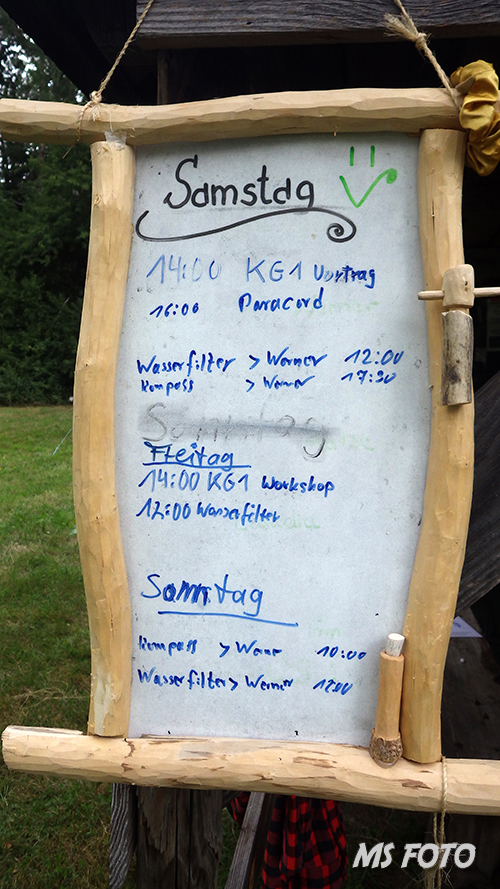 Samstag
14:00 KG1 Vortrag
16:00 Paracord
Wasserfilter > Werner 12:00
Kompass > Werner 17:30
Sonntag
Freitag
14:00 KG1 Workshop
12:00 Wasserfilter
Sonntag
Kompass > Werner 10:00
Wasserfilter > Werner 12:00
MS FOTO